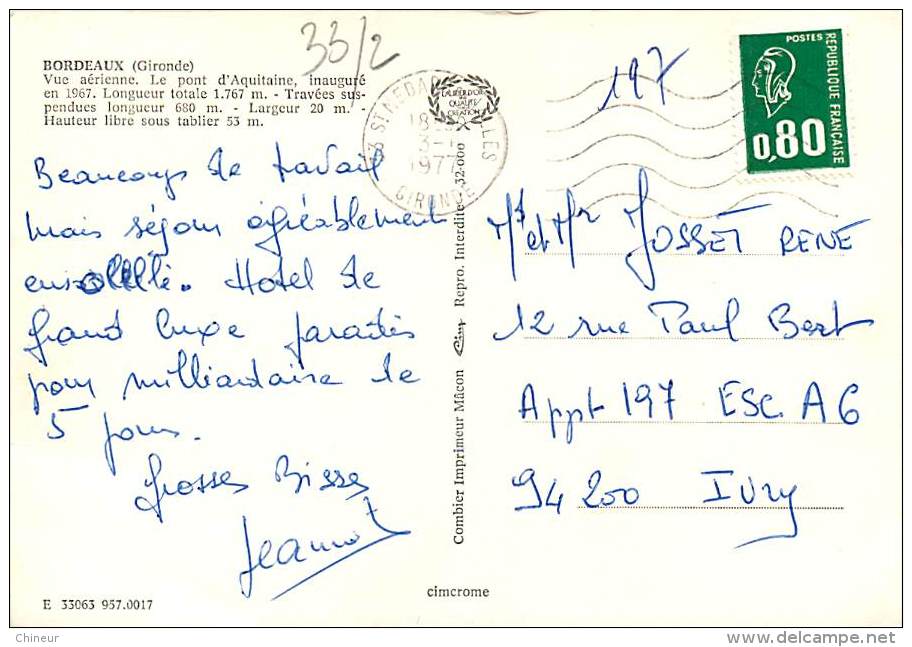 33/2
BORDEAUX (Gironde)
Vue aérienne. Le pont d'Aquitaine, inauguré
en 1967. Longueur totale 1.767 m. - Travées sus-
pendues longueur 680 m. - Largeur 20 m. -
Hauteur libre sous tablier 53 m.
Beaucoup de travail
mais séjour agréablement
ensoleillé. Hotel de
grand luxe paradis
pour milliardaire de
5 jours.
Grosses Bisses
Jeannot
E 33063 957.0017
LABEUR D'OR
QUALITÉ
CREATION
33 ST MEDARD
18
3-
1977
GIRONDE
Combier Imprimeur Mâcon Cim Repro. Interdite 32-000
cimcrome
197
POSTES
RÉPUBLIQUE FRANÇAISE
0,80
Md et Mr JOSSET RENE
12 rue Paul Bert
Appt 197 ESC. A 6
94 200 Ivry
Chineur
www.delcampe.net